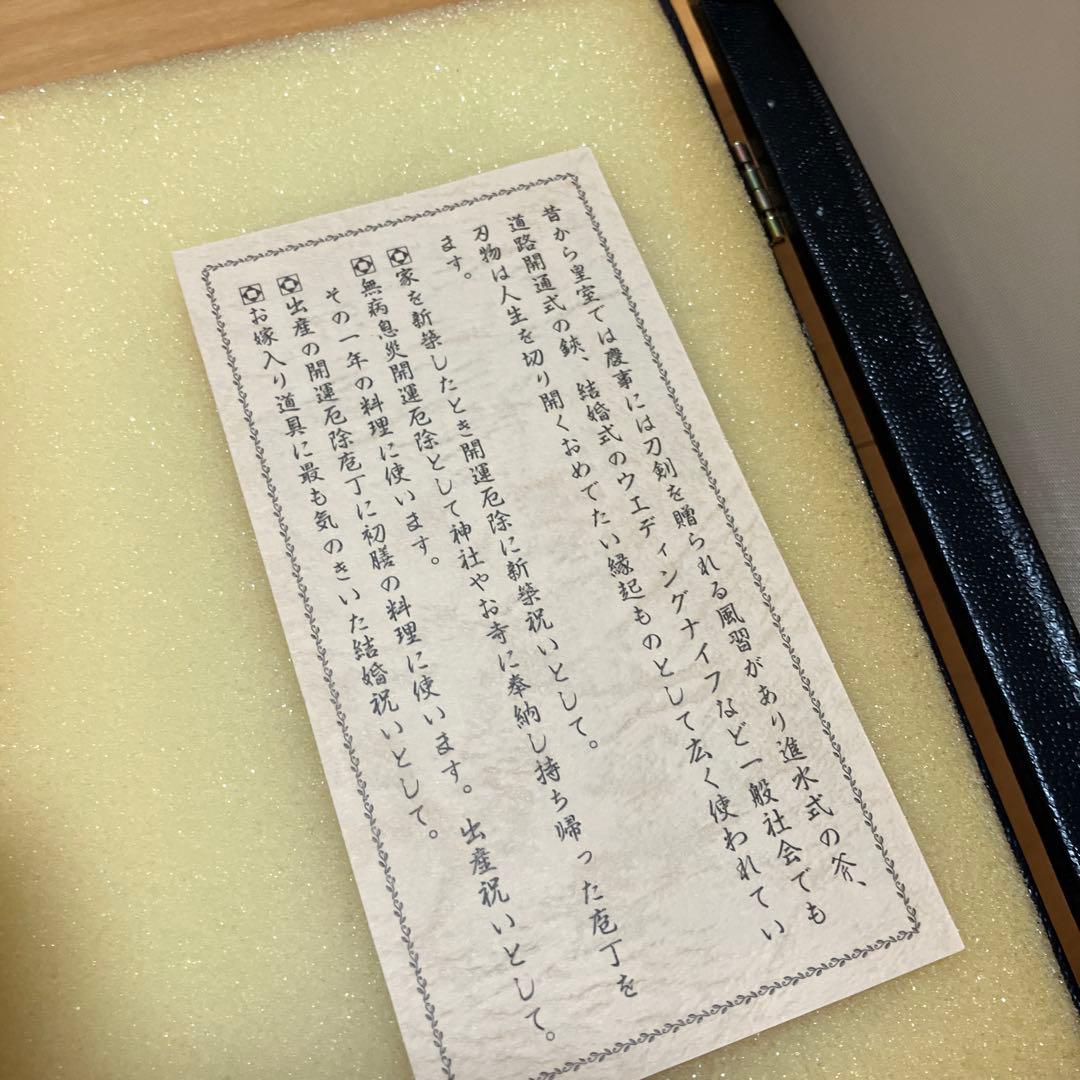 昔から皇室では慶事には刀剣を贈られる風習があり進水式の斧、
道路開通式の鋏、結婚式のウエディングナイフなど一般社会でも
刃物は人生を切り開くおめでたい縁起ものとして広く使われてい
ます。
家を新築したとき開運厄除に新築祝いとして。
無病息災開運厄除として神社やお寺に奉納し持ち帰った庖丁を
その一年の料理に使います。
出産の開運厄除庖丁に初膳の料理に使います。出産祝いとして。
お嫁入り道具に最も気のきいた結婚祝いとして。